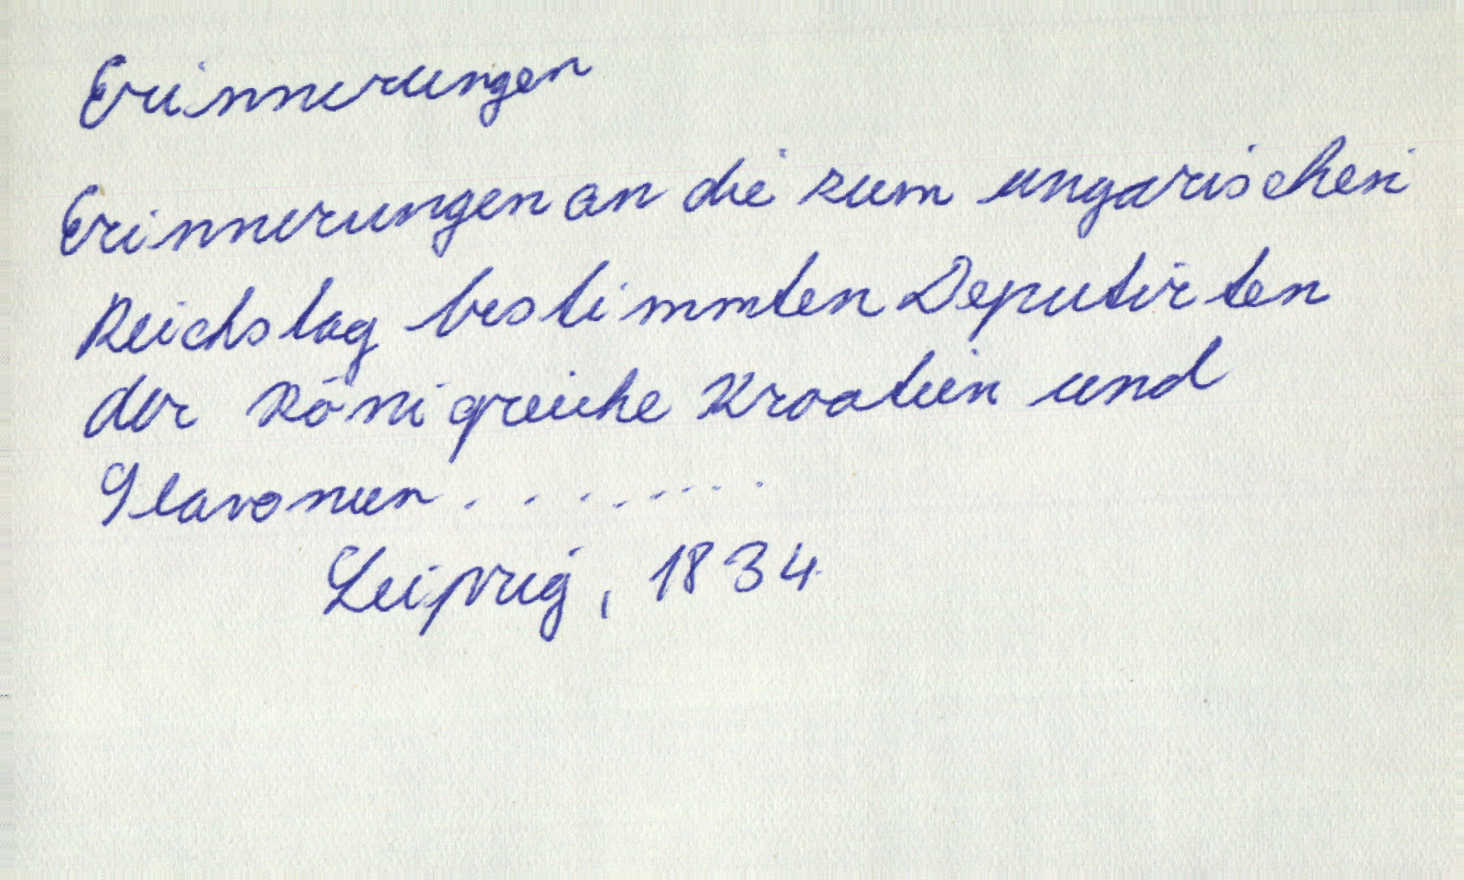 Erinnerungen
Erinnerungen an die zum ungarischen
Reichstag bestimmten Deputirten
der Königreiche Kroatien und
Slavonien . . . . . . . .
Leipzig, 1834